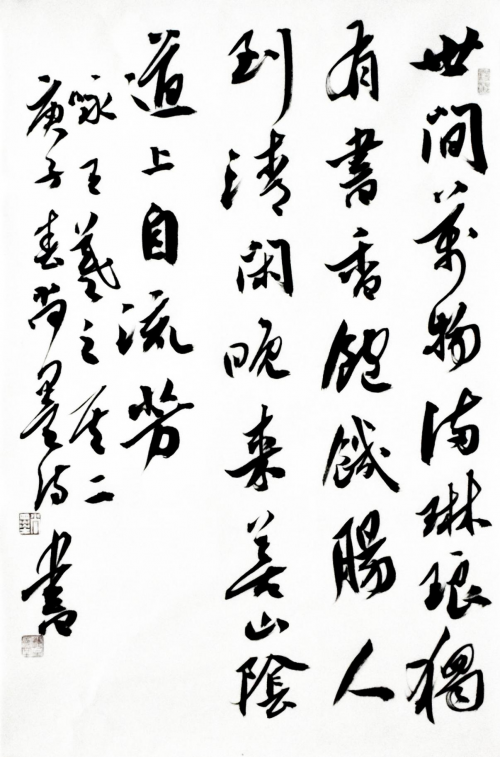 世間萬物滿琳琅獨
有書香飽餓腸人
到清閑晚來山陰
道上自流芳
咏王羲之其二
庚子春尚墨詩書